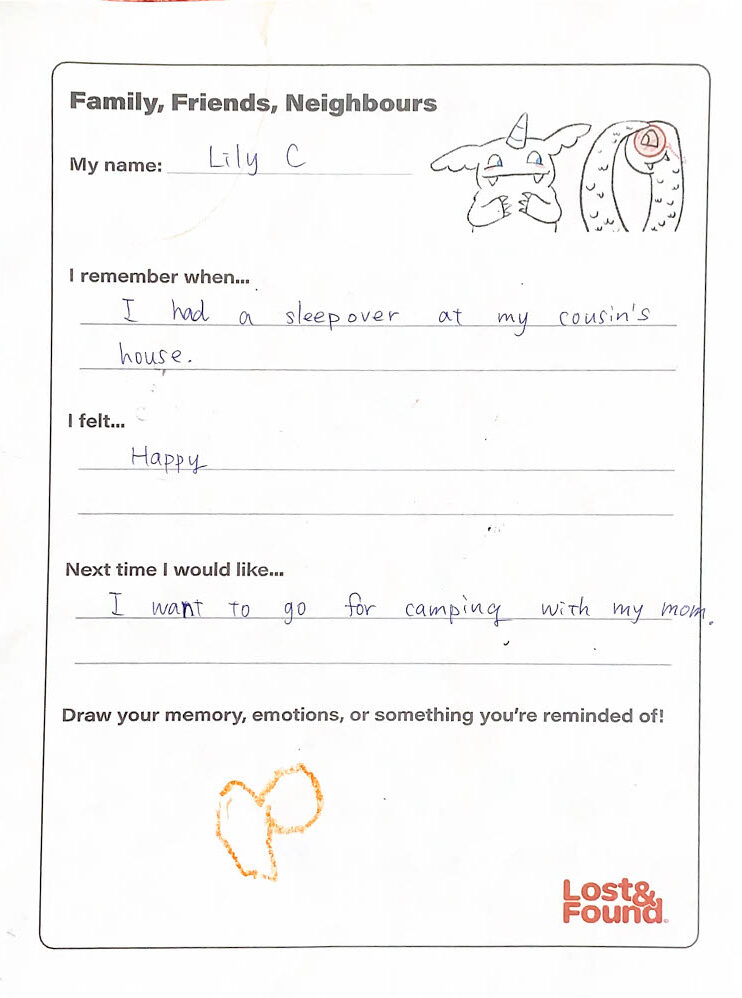 Family, Friends, Neighbours
My name: Lily C
I remember when...
I had a sleepover at my cousin's
house.
I felt...
Happy
Next time I would like...
I want to go for camping with my mom.
Draw your memory, emotions, or something you're reminded of!
Lost&
Found